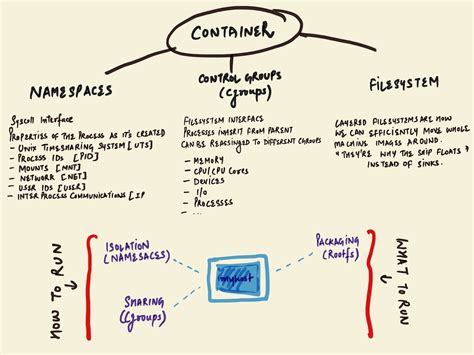 CONTAINER
NAMESPACES
Syscall Interface
PROPERTIES OF THE PROCESS AS IT'S CREATED
- UNIX TIMESHARING SYSTEM [UTS]
- PROCESS IDS [PID]
- MOUNTS [MNT]
- NETWORK [NET]
- USER IDS [USER]
- INTER PROCESS COMMUNICATIONS [IP
CONTROL GROUPS
(Cgroups)
FILESYSTEM INTERFACE
PROCESSES INHERIT FROM PARENT
CAN BE REASSIGNED TO DIFFERENT CGROUPS
- MEMORY
- CPU/CPU CORES
- DEVICES
- I/O
- PROCESSES
- ...
FILESYSTEM
LAYERED FILESYSTEMS ARE HOW
WE CAN EFFICIENTLY MOVE WHOLE
MACHINE IMAGES AROUND.
"THEY'RE WHY THE SHIP FLOATS"
INSTEAD OF SINKS.
HOW TO RUN
ISOLATION
(NAMESACES)
SHARING
(Cgroups)
PACKAGING
(Rootfs)
WHAT TO RUN